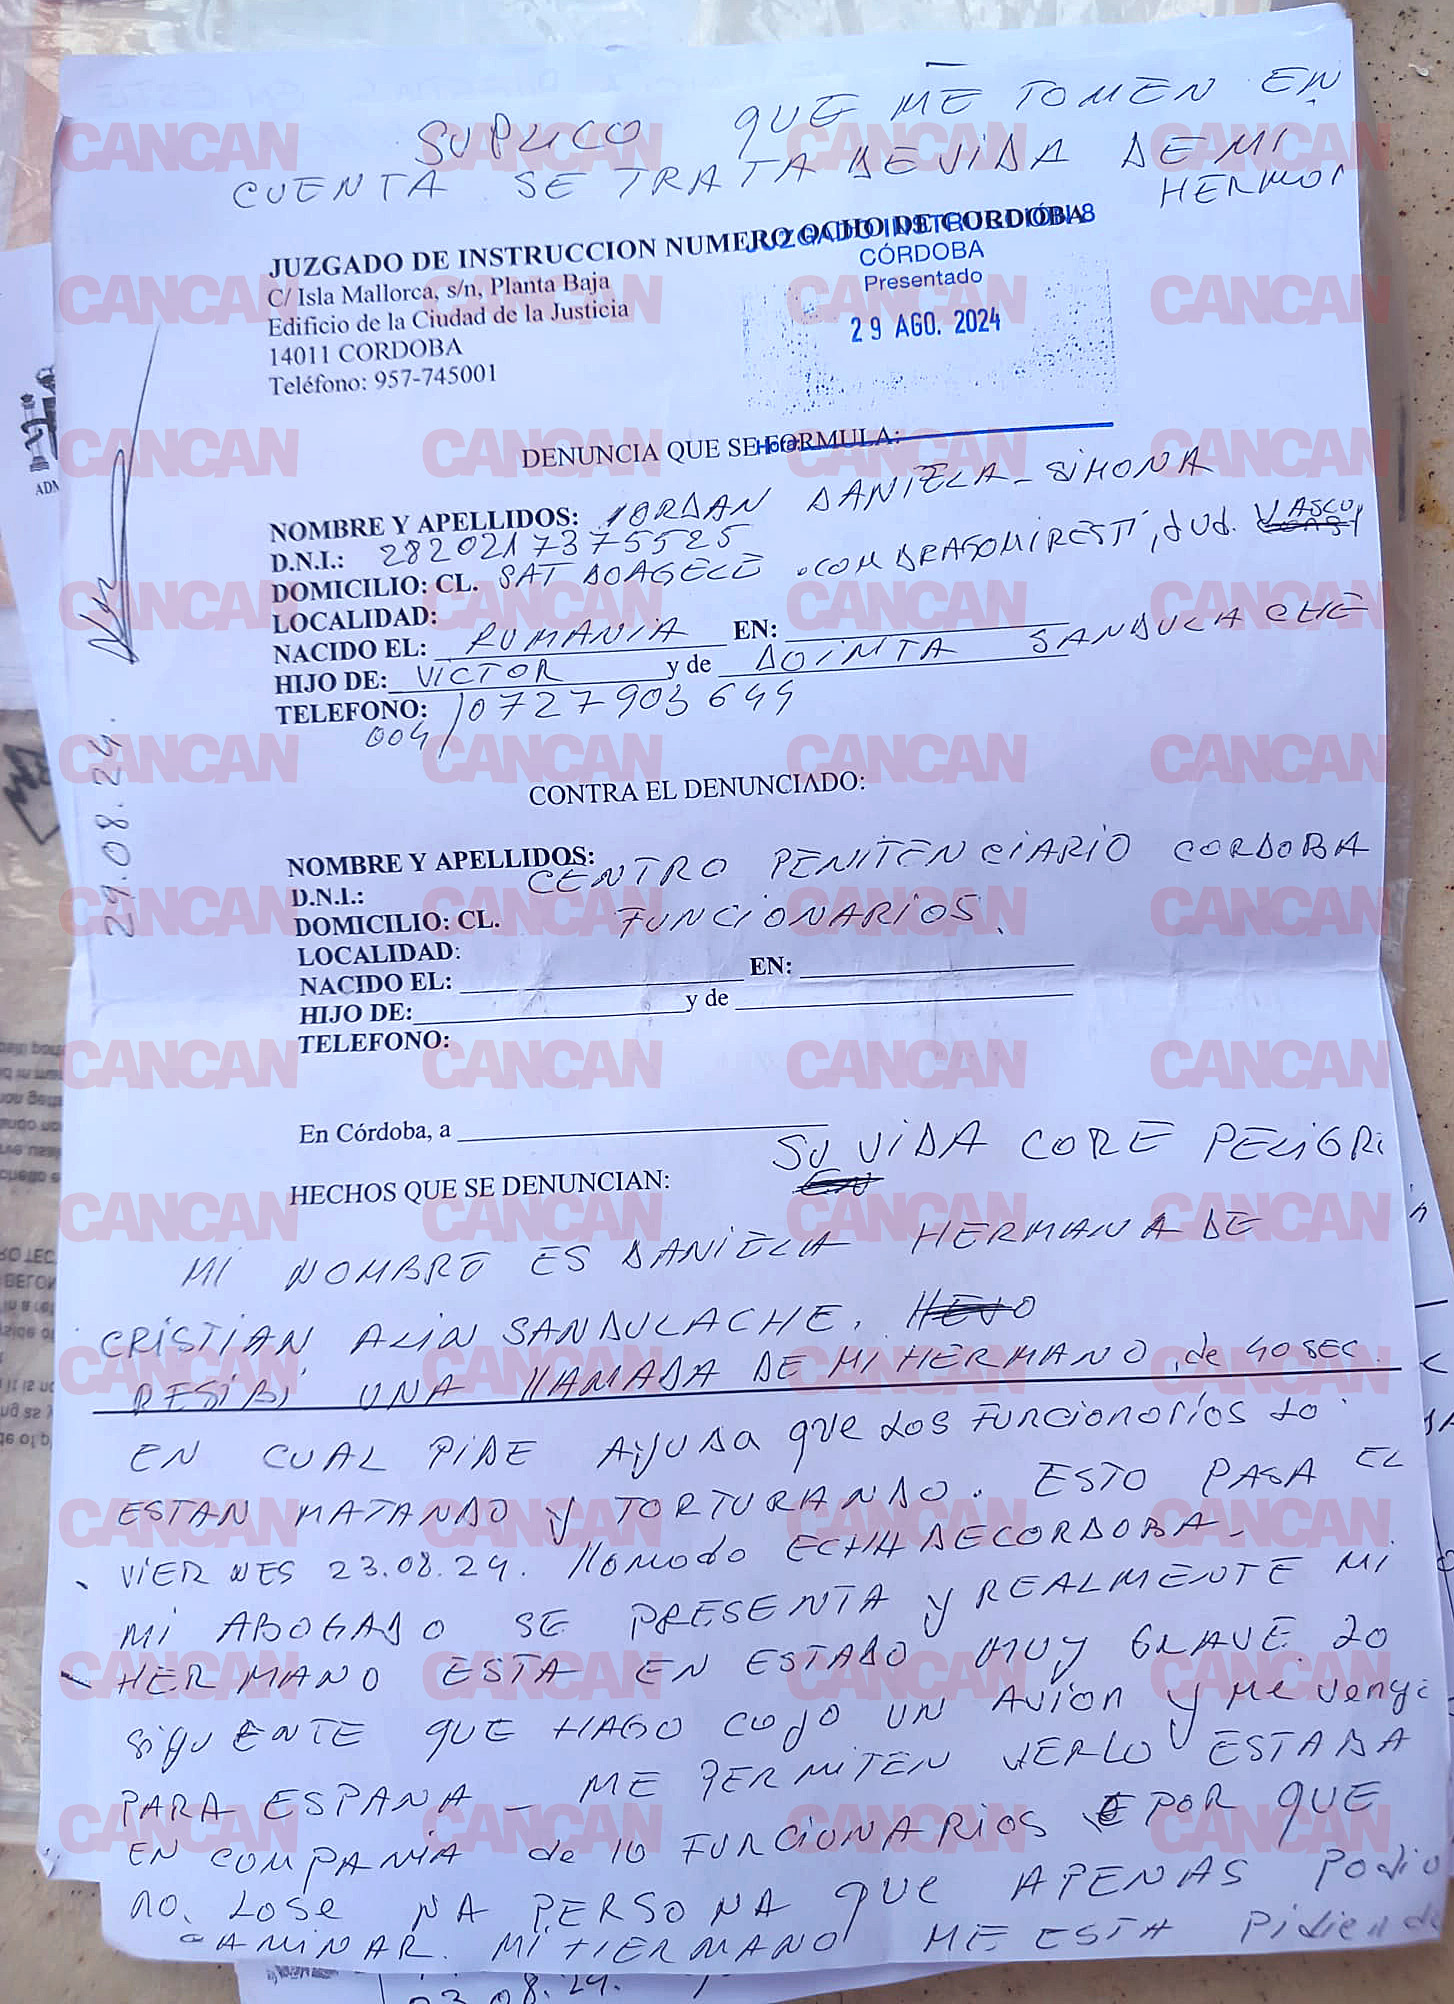 SUPLICO QUE ME TOMEN EN
CUENTA SE TRATA DE VIDA DE MI
HERMO
JUZGADO DE INSTRUCCION NUMERO OCHO DE CORDOBA
C/ Isla Mallorca, s/n, Planta Baja
Edificio de la Ciudad de la Justicia
14011 CORDOBA
Teléfono: 957-745001
JUZGADO INSTRUCCIÓN 8
CÓRDOBA
Presentado
29 AGO. 2024
Hora:
DENUNCIA QUE SE FORMULA:
NOMBRE Y APELLIDOS: IORDAN DANIELA-SIMONA
D.N.I.: 2820217375525
DOMICILIO: CL. SAT BOAGELE .COM DRAGOMIRESTI, JUD. VASLUI
LOCALIDAD:
NACIDO EL: RUMANIA EN:
HIJO DE: VICTOR y de DOINTA SANDULACHE
TELEFONO: 004/0727903649
29.08.24.
CONTRA EL DENUNCIADO:
NOMBRE Y APELLIDOS: CENTRO PENITENCIARIO CORDOBA
D.N.I.:
DOMICILIO: CL. FUNCIONARIOS.
LOCALIDAD:
NACIDO EL: EN:
HIJO DE: y de
TELEFONO:
En Córdoba, a
SU VIDA CORE PELIGRI
HECHOS QUE SE DENUNCIAN:
MI NOMBRE ES DANIELA HERMANA DE
CRISTIAN ALIN SANDULACHE.
RESIBI UNA LLAMADA DE MI HERMANO, de 40 SEC.
EN CUAL PIDE AYUDA QUE LOS FUNCIONARIOS LO
ESTAN MATANDO Y TORTURANDO. ESTO PASA EL
VIERNES 23.08.24. llamado ECHA DE CORDOBA-
MI ABOGADO SE PRESENTA Y REALMENTE MI
HERMANO ESTA EN ESTADO MUY GRAVE. LO
SIGUENTE QUE HAGO COJO UN AVION Y ME vengo
PARA ESPAÑA - ME PERMITEN VERLO ESTABA
EN COMPANIA de 10 FUNCIONARIOS POR QUE
NO. LOSE NA PERSONA QUE APENAS PODIO
CAMINAR. MI HERMANO ME ESTA PIDIENDO
CANCAN